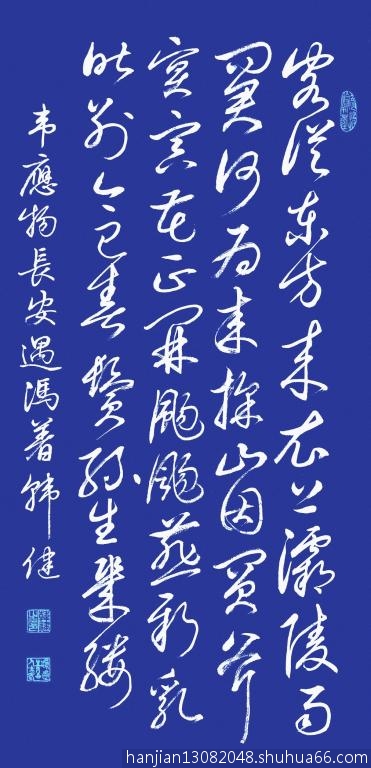 客從東方来衣上灞陵雨
问客何为来採山因買斧
冥冥花正開颺颺燕新乳
昨别今已春鬓丝生幾縷
韦應物長安遇馮著韩健
hanjian13082048.shuhua66.com